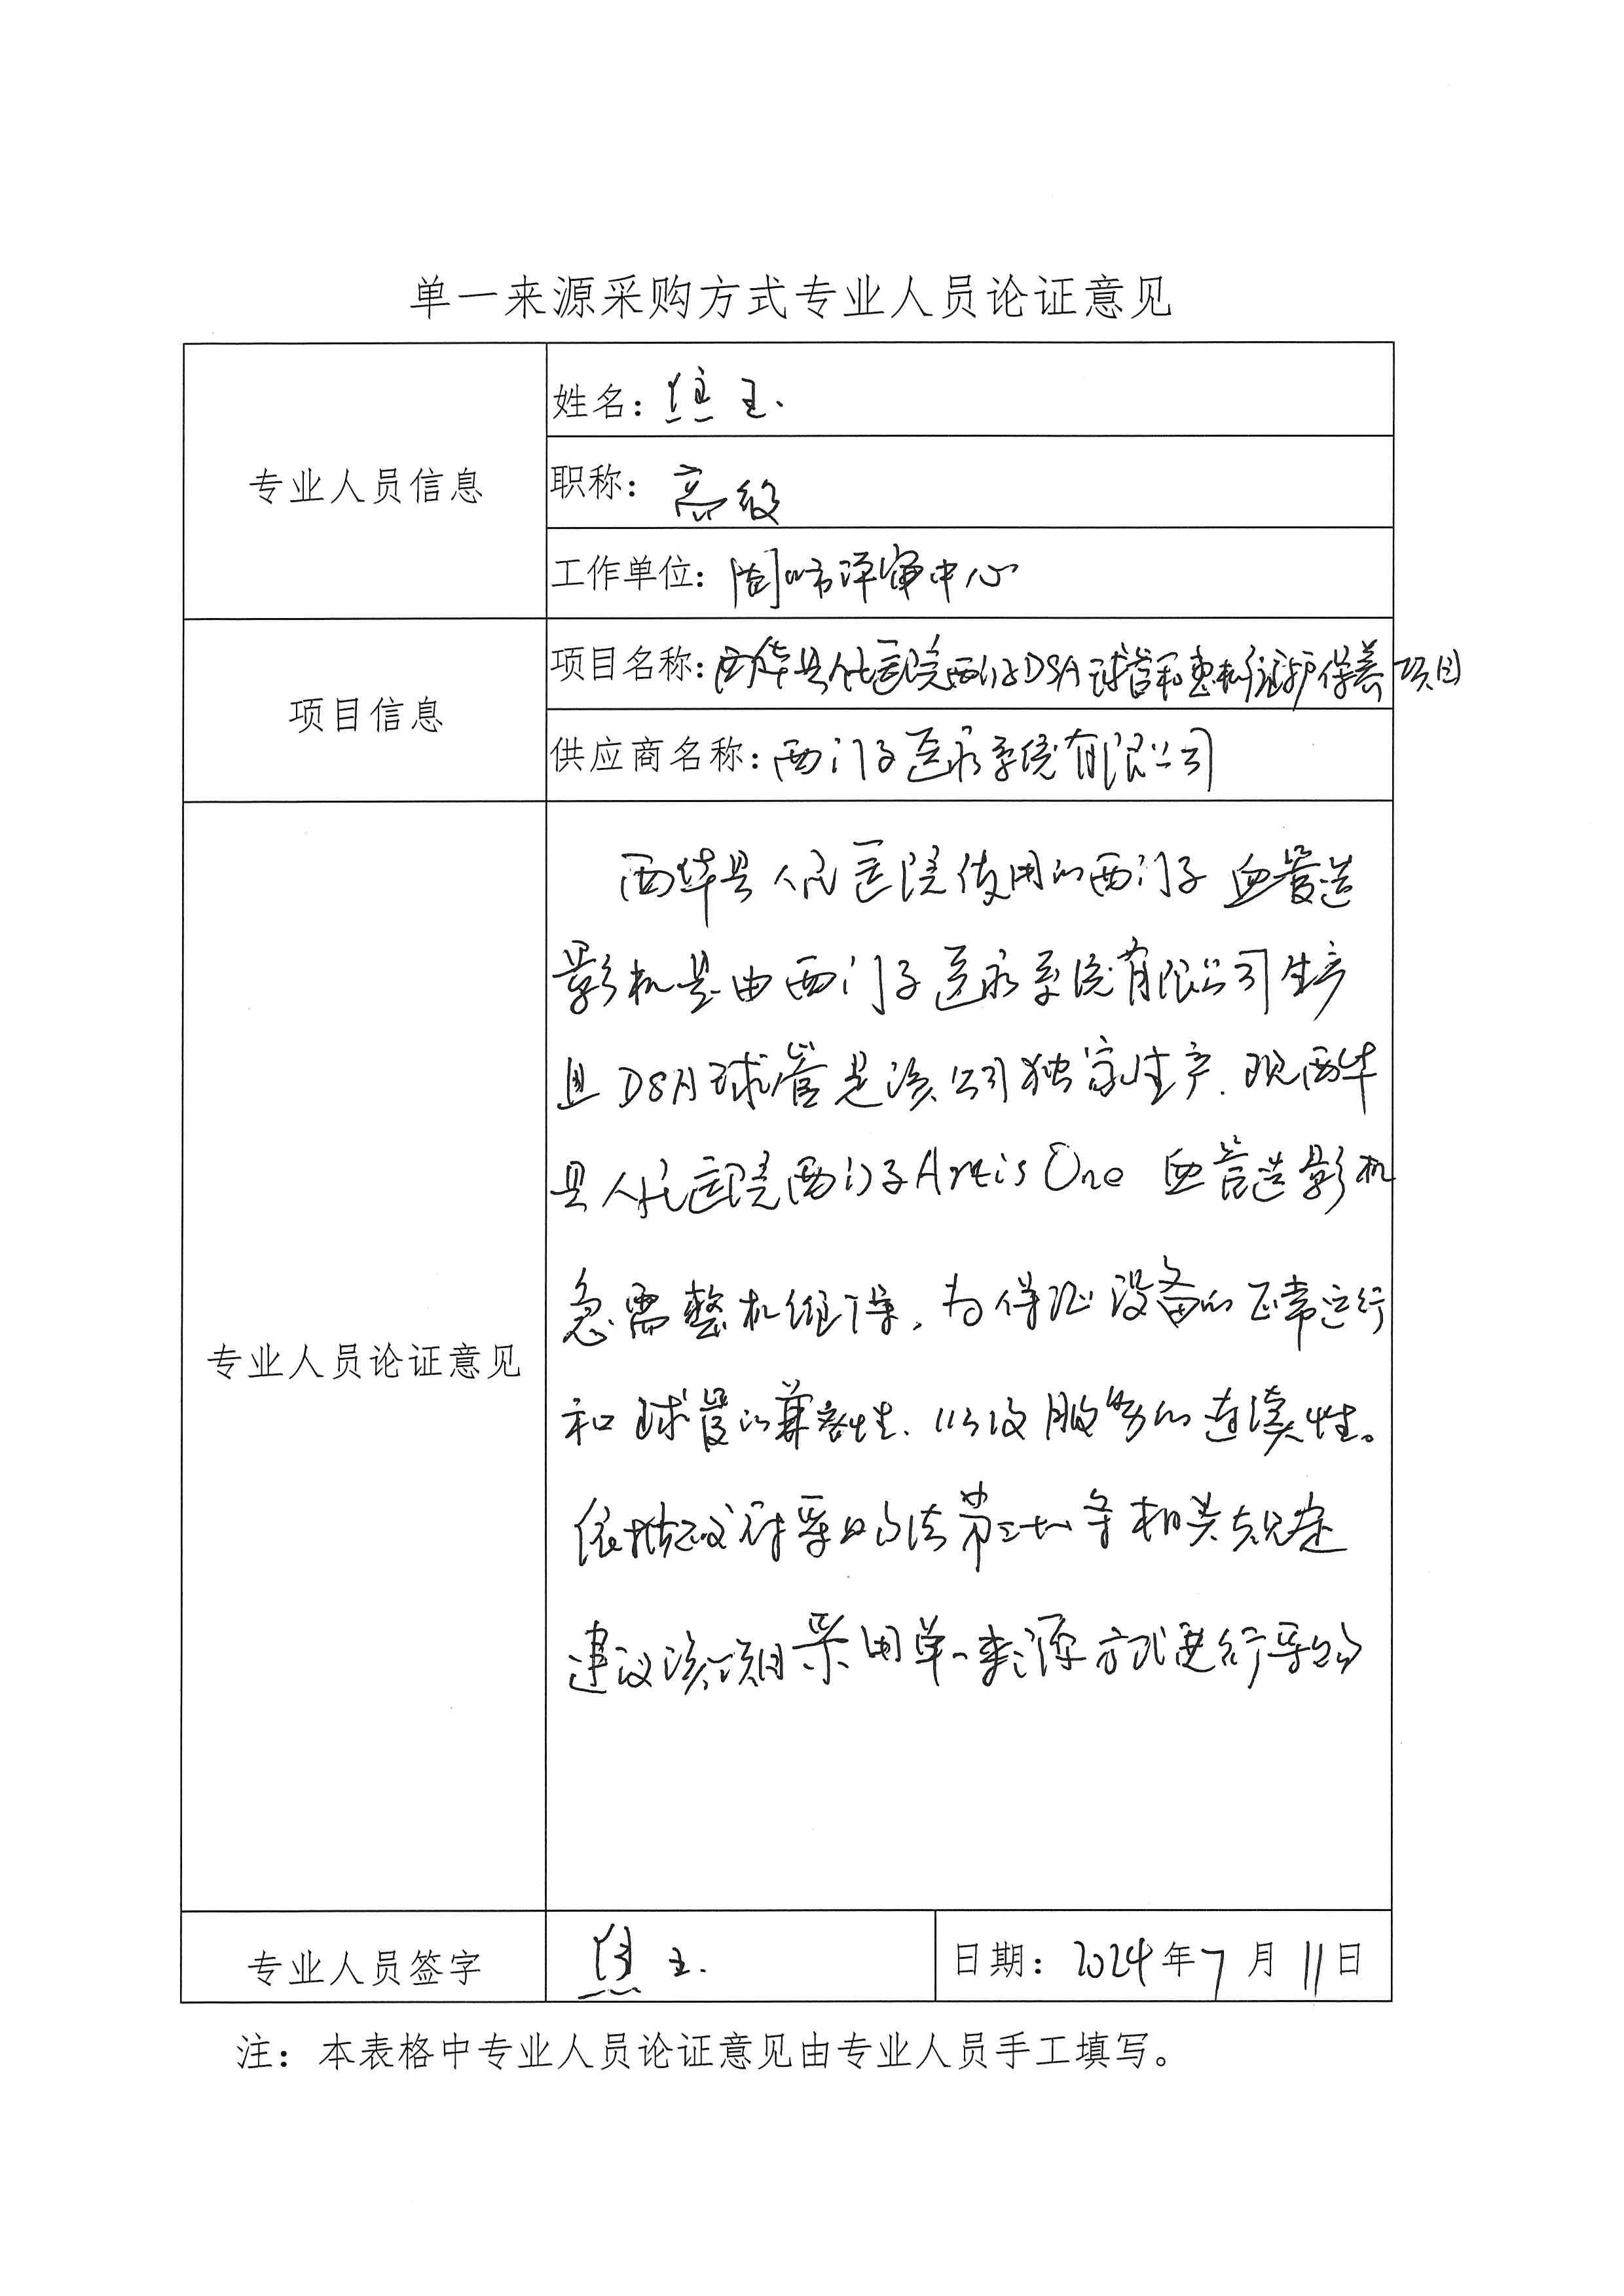 单一来源采购方式专业人员论证意见
专业人员信息
姓名：焦玉
职称：高级
工作单位：周口市评审中心
项目信息
项目名称：西华县人民医院西门子DSA球管和整机维护保养项目
供应商名称：西门子医疗系统有限公司
专业人员论证意见
西华县人民医院使用的西门子血管造
影机是由西门子医疗系统有限公司生产
且DSA球管是该公司独家生产.现西华
县人民医院西门子Artis One 血管造影机
急需整机维保，为保证设备的正常运行
和球管的兼容性、以及服务的连续性。
依据政府采购法第三十一条相关规定
建议该项目采用单一来源方式进行采购
专业人员签字
焦玉
日期：2024年7月11日
注：本表格中专业人员论证意见由专业人员手工填写。